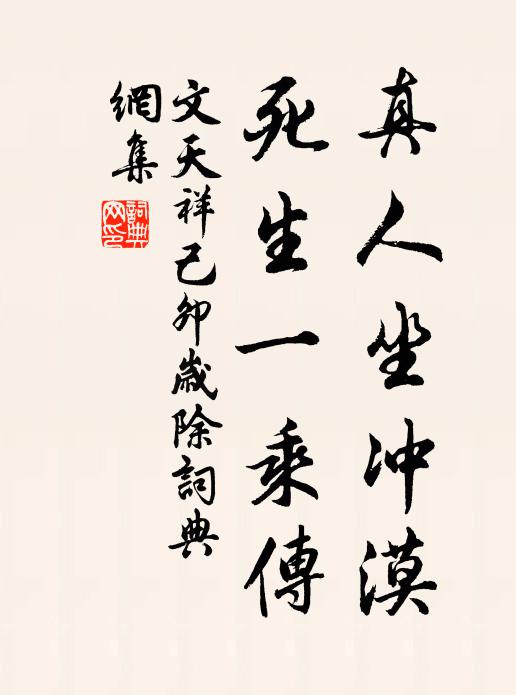 真人坐冲漠
死生一乘傳
文天祥己卯歲除詞典
網集
詞典
网印